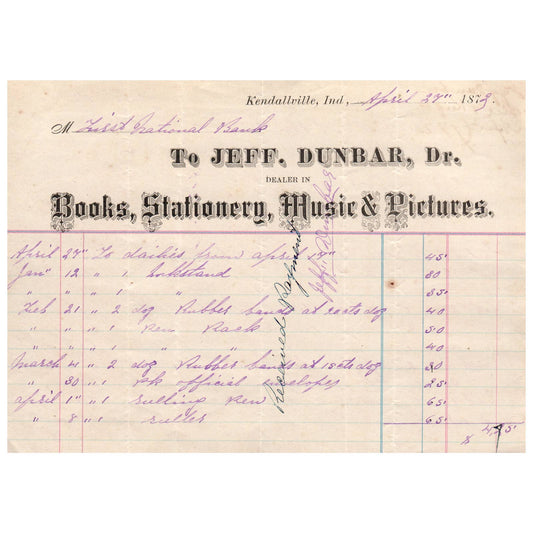 Kendallville, Ind., April 27" 1879.
M First National Bank
To JEFF. DUNBAR, Dr.
DEALER IN
Books, Stationery, Music & Pictures.
April 27" To dailies from april 45
Jan" 12 " 1 Inkstand 80
" " 1 " 35
Feb 21 " 2 dog Rubber bands at 20cts dog 40
" " " 1 Pen Rack 50
" " " 1 " " 40
March 4 " 2 dog Rubber bands at 15cts dog 30
" 30 " 1 Pk official envelopes 25
april 1" " 1 rulling Pen 65
" 8 " 1 ruller 65
$ 4,
Received Payment
Jeff. Dunbar